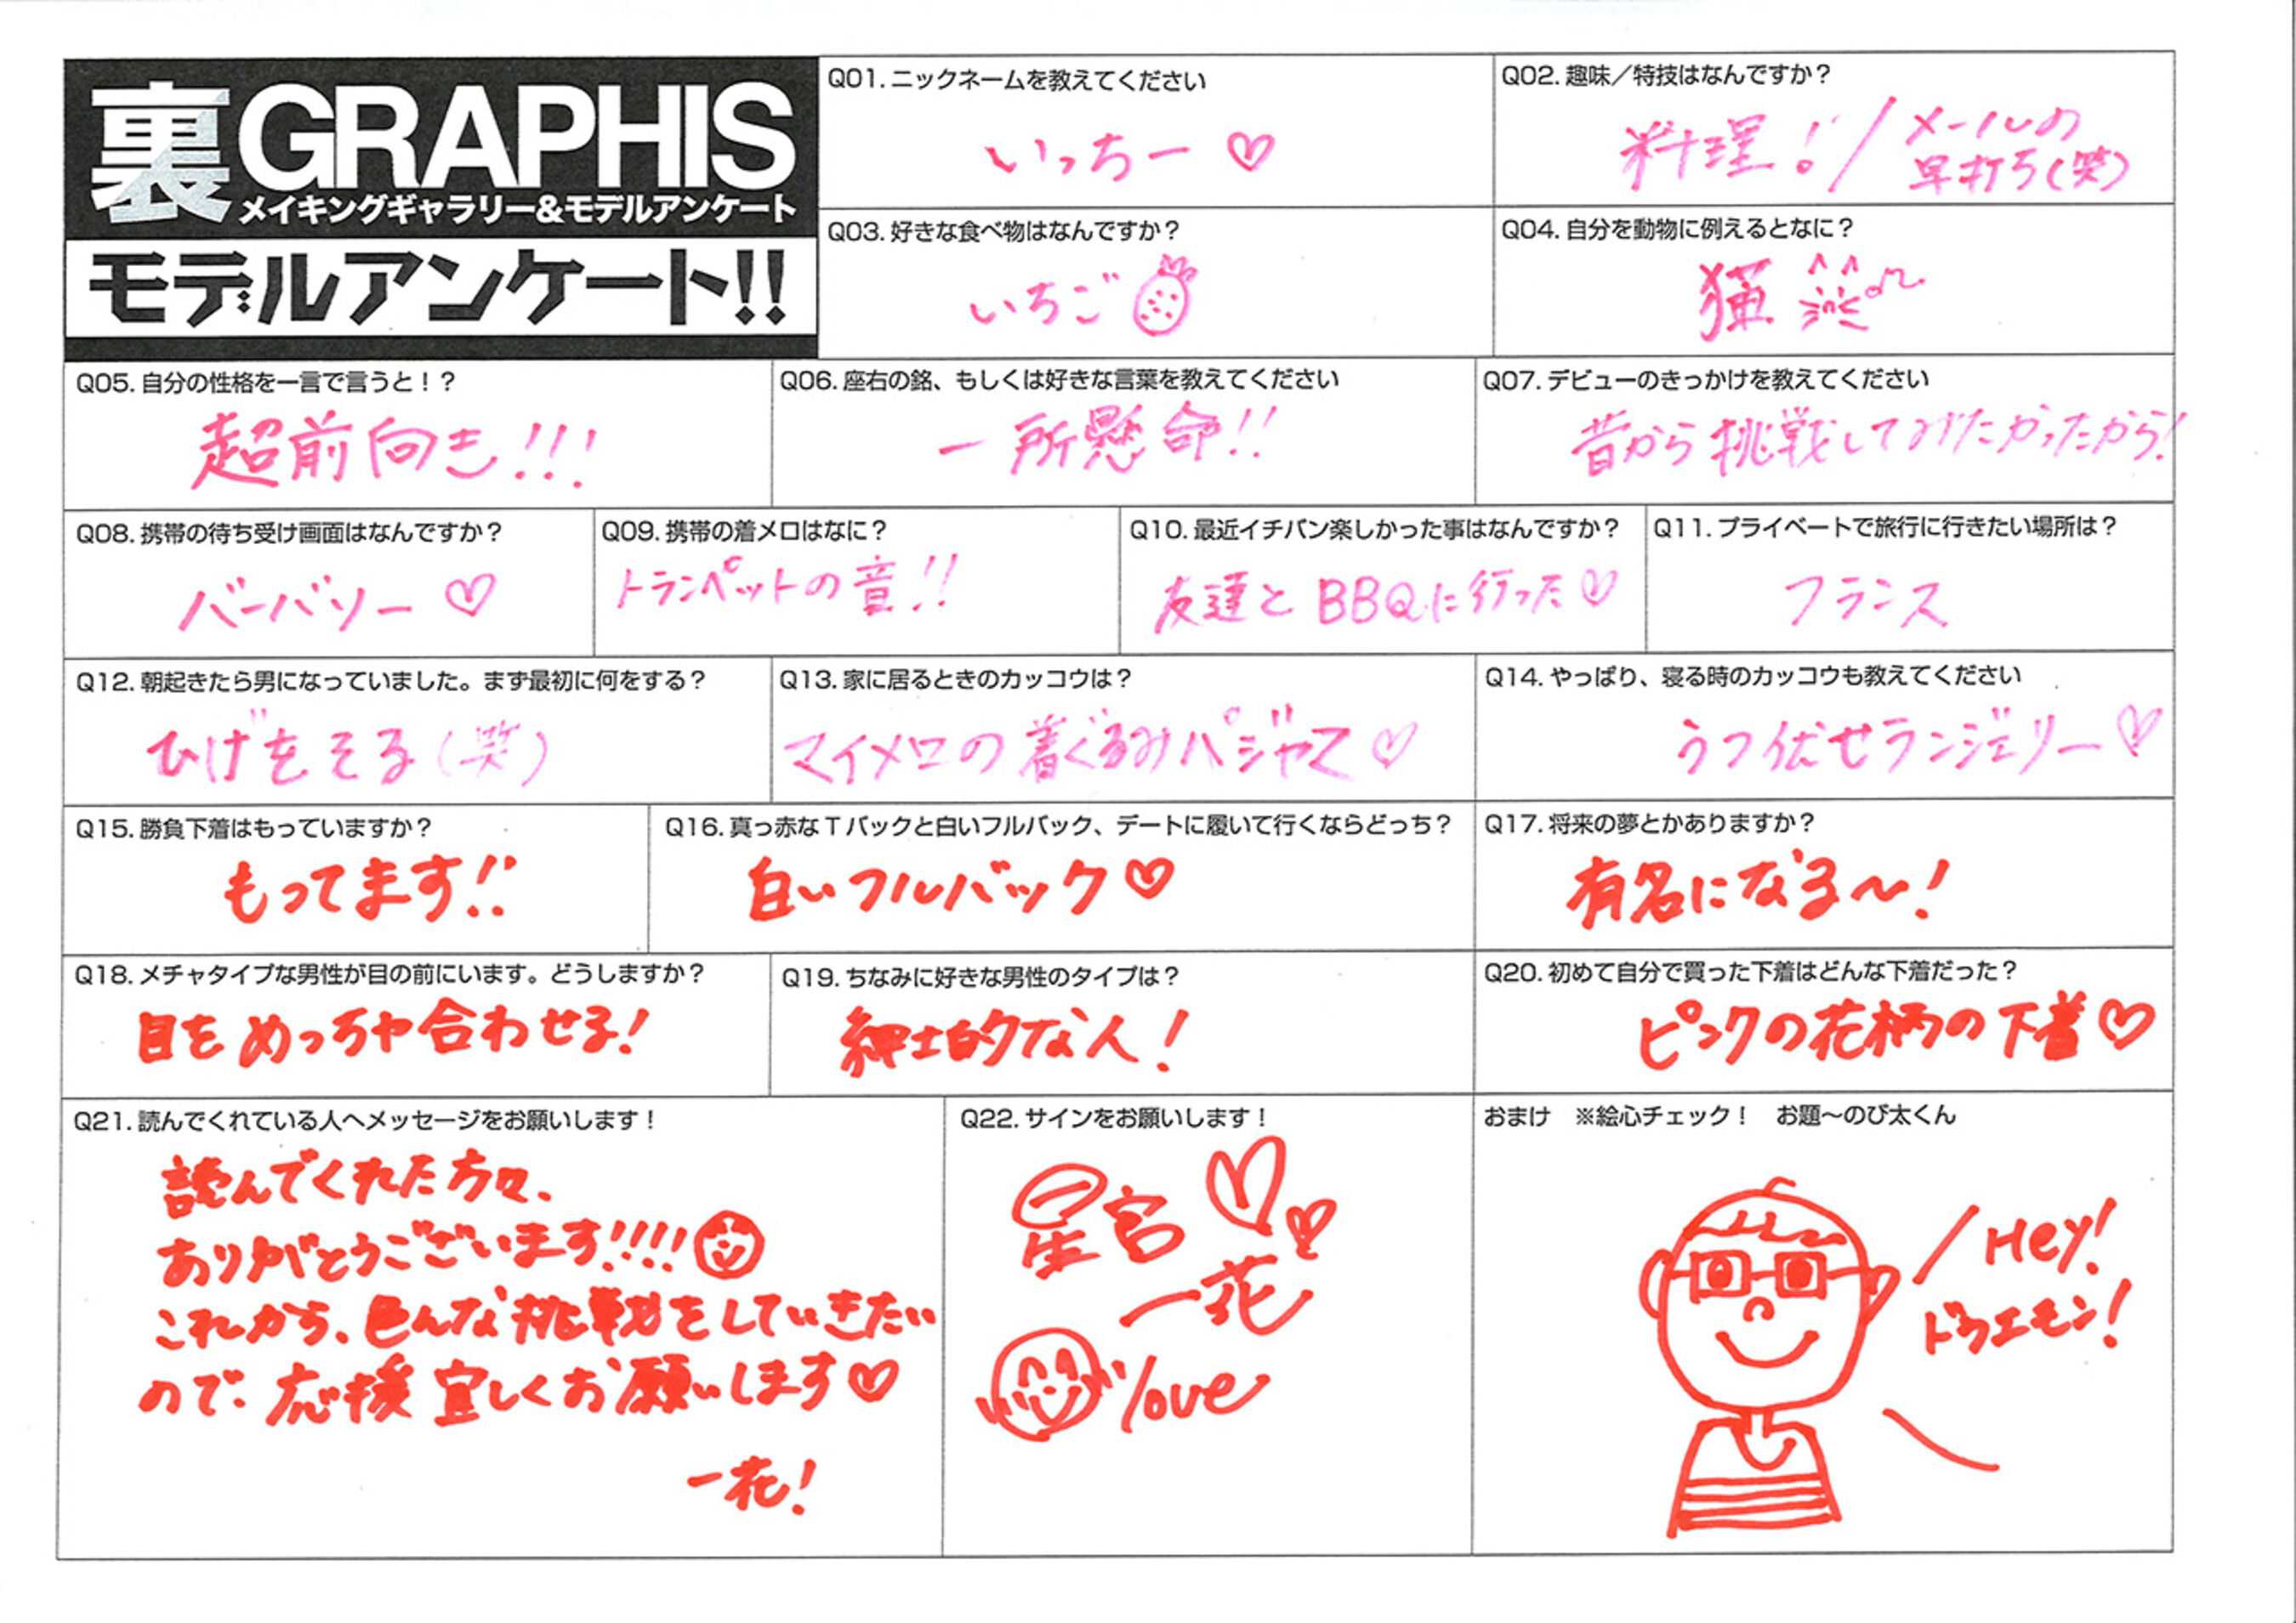 裏GRAPHIS
メイキングギャラリー&モデルアンケート
モデルアンケート!!
Q01. ニックネームを教えてください
いっちー♡
Q02. 趣味／特技はなんですか？
料理！／メールの
早打ち(笑)
Q03. 好きな食べ物はなんですか？
いちご
Q04. 自分を動物に例えるとなに？
猫
Q05. 自分の性格を一言で言うと！？
超前向き!!!
Q06. 座右の銘、もしくは好きな言葉を教えてください
一所懸命!!
Q07. デビューのきっかけを教えてください
昔から挑戦してみたかったから！
Q08. 携帯の待ち受け画面はなんですか？
バーバリー♡
Q09. 携帯の着メロはなに？
トランペットの音!!
Q10. 最近イチバン楽しかった事はなんですか？
友達とBBQに行った♡
Q11. プライベートで旅行に行きたい場所は？
フランス
Q12. 朝起きたら男になっていました。まず最初に何をする？
ひげをそる(笑)
Q13. 家に居るときのカッコウは？
マイメロの着ぐるみパジャマ♡
Q14. やっぱり、寝る時のカッコウも教えてください
うつ伏せランジェリー♡
Q15. 勝負下着はもっていますか？
もってます!!
Q16. 真っ赤なＴバックと白いフルバック、デートに履いて行くならどっち？
白いフルバック♡
Q17. 将来の夢とかありますか？
有名になる〜！
Q18. メチャタイプな男性が目の前にいます。どうしますか？
目をめっちゃ合わせる！
Q19. ちなみに好きな男性のタイプは？
紳士的な人！
Q20. 初めて自分で買った下着はどんな下着だった？
ピンクの花柄の下着♡
Q21. 読んでくれている人へメッセージをお願いします！
読んでくれた方々、
ありがとうございます!!!!
これから、色んな挑戦をしていきたい
ので、応援宜しくお願いします♡
一花！
Q22. サインをお願いします！
星宮♡♡
一花
love
おまけ　※絵心チェック！　お題〜のび太くん
Hey!
ドラエモン！